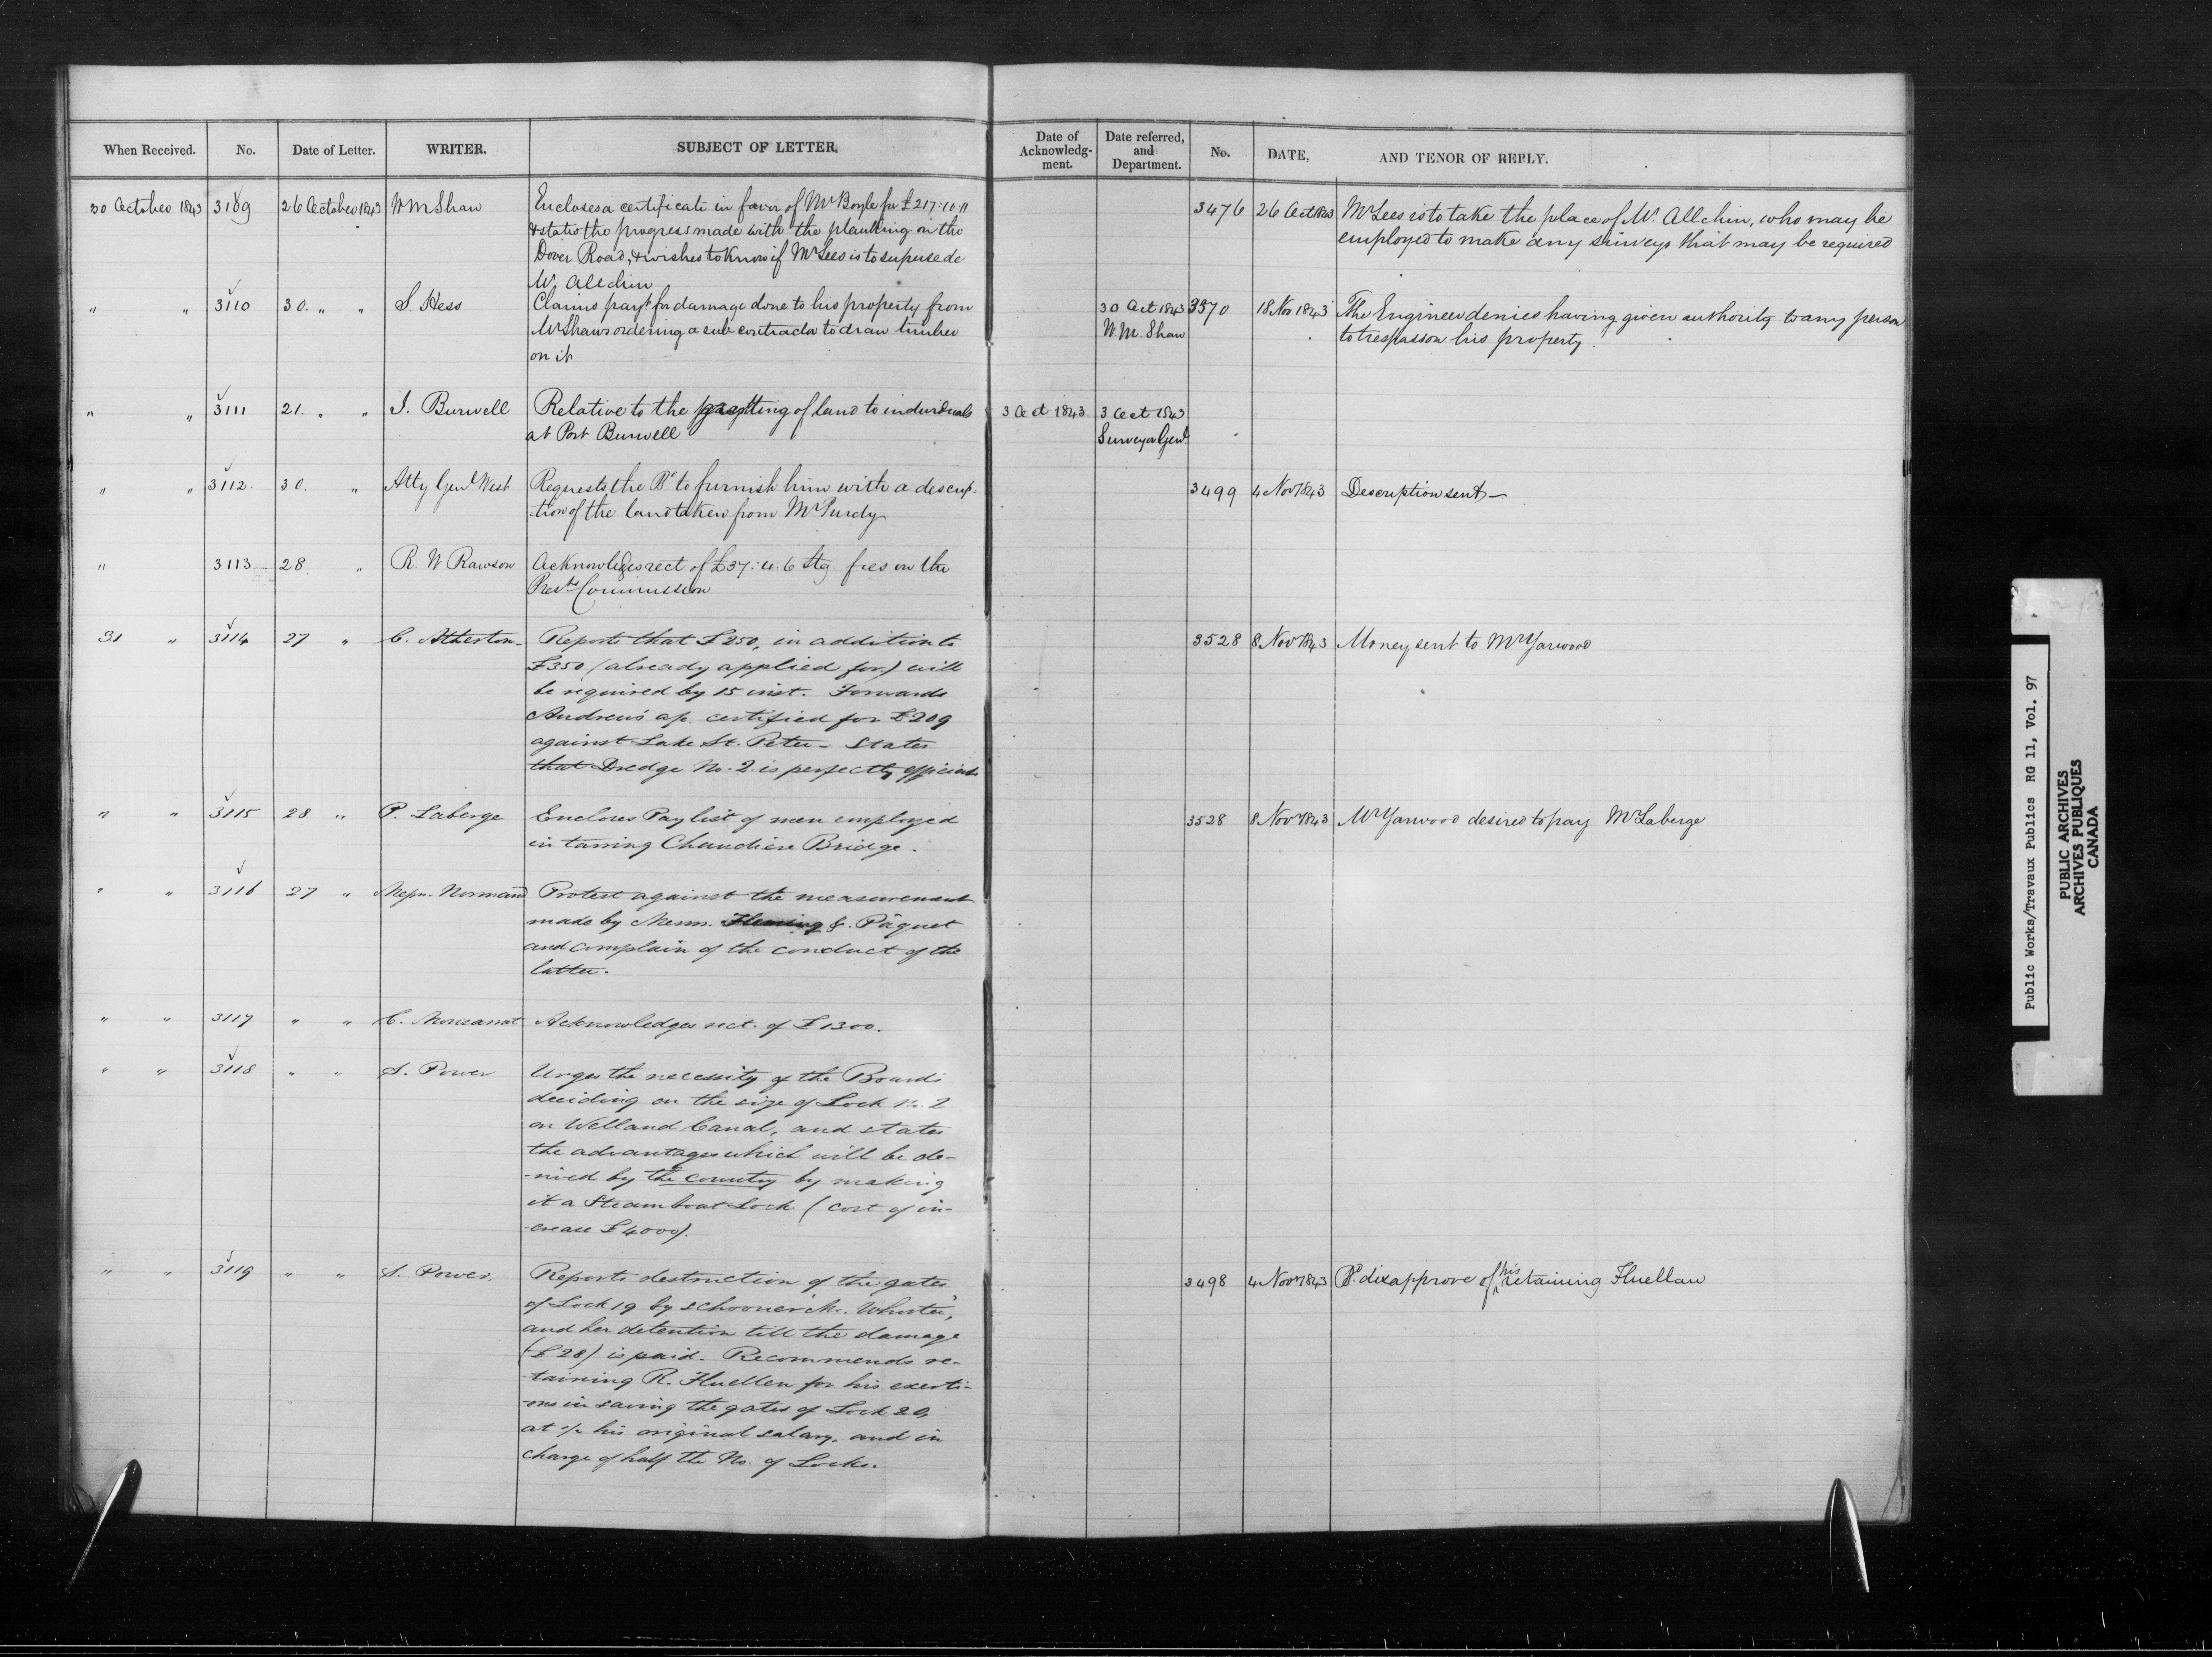 When Received. No. Date of Letter. WRITER. SUBJECT OF LETTER.
Date of Acknowledg-ment. Date referred, and Department. No. DATE, AND TENOR OF REPLY.
30 October 1843 3109 26 October 1843 W M Shaw Encloses a certificate in favor of Mr Boyle for £217.10.11
& states the progress made with the planking on the
Dover Road, & wishes to know if Mr Lees is to supersede
Mr. Allchin
3476 26 Oct 1843 Mr Lees is to take the place of Mr. Allchin, who may be
employed to make any surveys that may be required
" " 3110 30. " " S. Hess Claims payt for damage done to his property from
Mr Shaws ordering a sub contractor to draw timber
on it
30 Oct 1843 3570 18 Nov 1843 The Engineer denies having given authority to any person
W. M. Shaw to trespass on his property.
" " 3111 21. " " I. Burwell Relative to the granting of land to individuals
at Port Burwell
3 Oct 1843 3 Oct 1843
Surveyor Genl
" " 3112. 30. " Atty Genl West Requests the Bd to furnish him with a descrip-
-tion of the land taken from Mr Purdy
3499 4 Nov 1843 Description sent—
" 3113 28 " R. W Rawson Acknowledges rect of £37:4:6 Stg fees on the
Presdts Commission
31 " 3114 27 " C. Atherton- Reports that £250, in addition to
£350 (already applied for) will
be required by 15 inst. Forwards
Andrew's a/c. certified for £209
against Lake St. Peter - States
that Dredge No. 2 is perfectly efficient
3528 8 Nov 1843 Money sent to Mr Yarwood
" " 3115 28 " P. Laberge Encloses Pay list of men employed
in tarring Chaudiere Bridge.
3528 8 Nov 1843 Mr Yarwood desired to pay Mr Laberge
" " 3116 27 " Normand Protest against the measurement
made by Messrs. Fleming & Pâquet
and complain of the conduct of the
latter.
" " 3117 " " C. Acknowledges rect. of £1300.
" " 3118 " " S. Power Urges the necessity of the Board's
deciding on the size of Lock No. 2
on Welland Canal, and states
the advantages which will be de-
-rived by the country by making
it a Steamboat Lock (cost of in-
-crease £4000).
" " 3119 " " S. Power. Reports destruction of the gates
of Lock 19 by schooner
and her detention till the damage
(£28) is paid. Recommends re-
-taining R. Fluellen for his exerti-
-ons in saving the gates of Lock 20,
at ½ his original salary, and in
charge of half the No. of Locks.
3498 4 Nov 1843 Bd. disapprove of his retaining Fluellan
Public Works/Travaux Publics RG 11, Vol. 97
PUBLIC ARCHIVES
ARCHIVES PUBLIQUES
CANADA